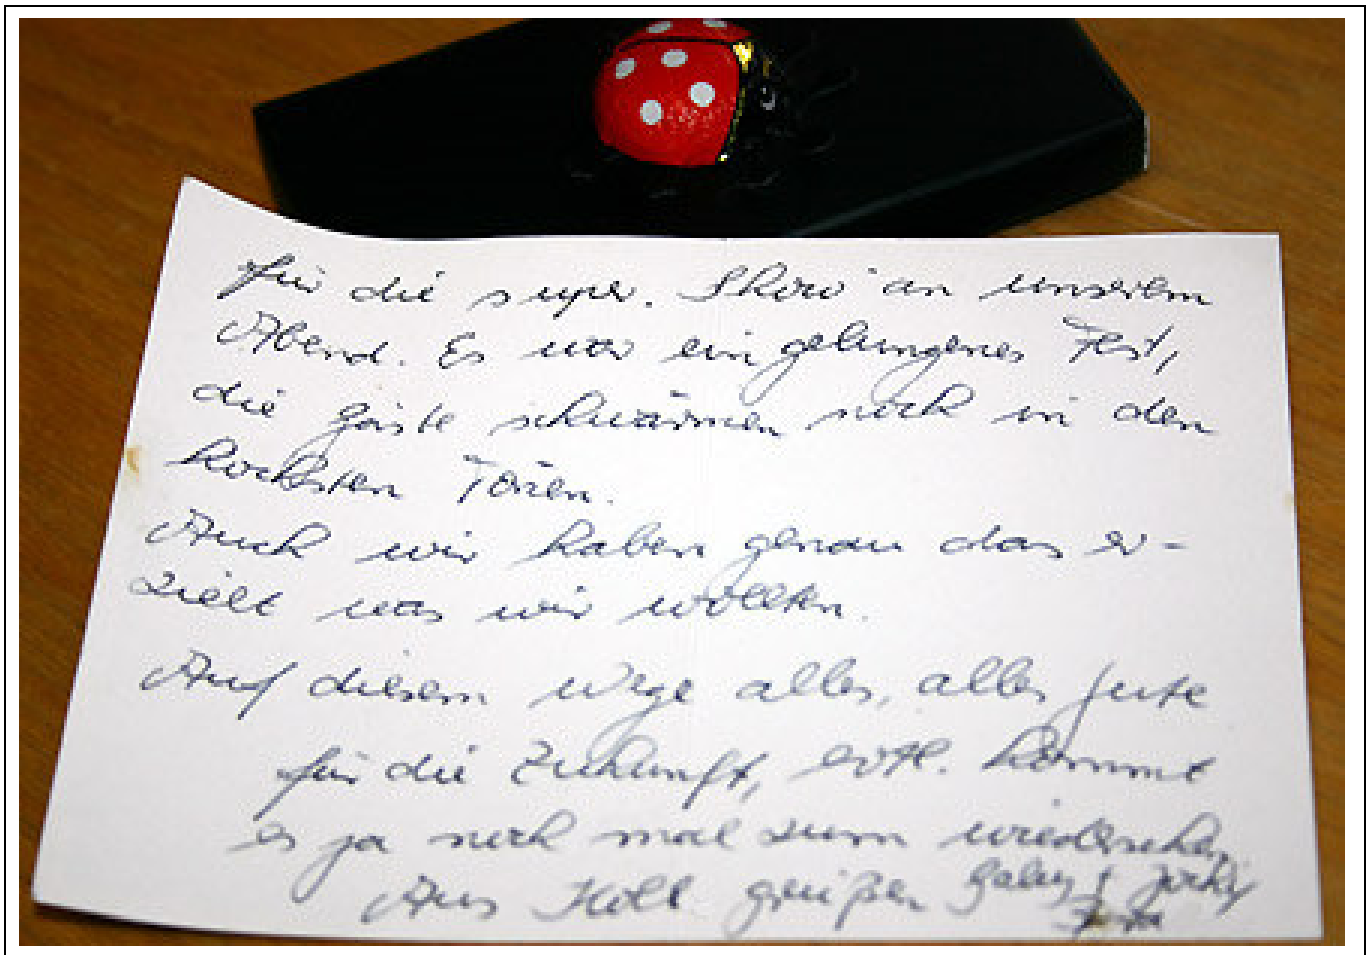 für die super. Show an unserem
Abend. Es war ein gelungenes Fest,
die Gäste schwärmen noch in den
hochsten Tönen.
Auch wir haben genau das er-
zielt was wir wollten.
Auf diesem Wege alles, alles Gute
für die Zukunft, evtl. kommt
es ja noch mal zum wiedersehen,
Aus Köll grüßen Gaby &